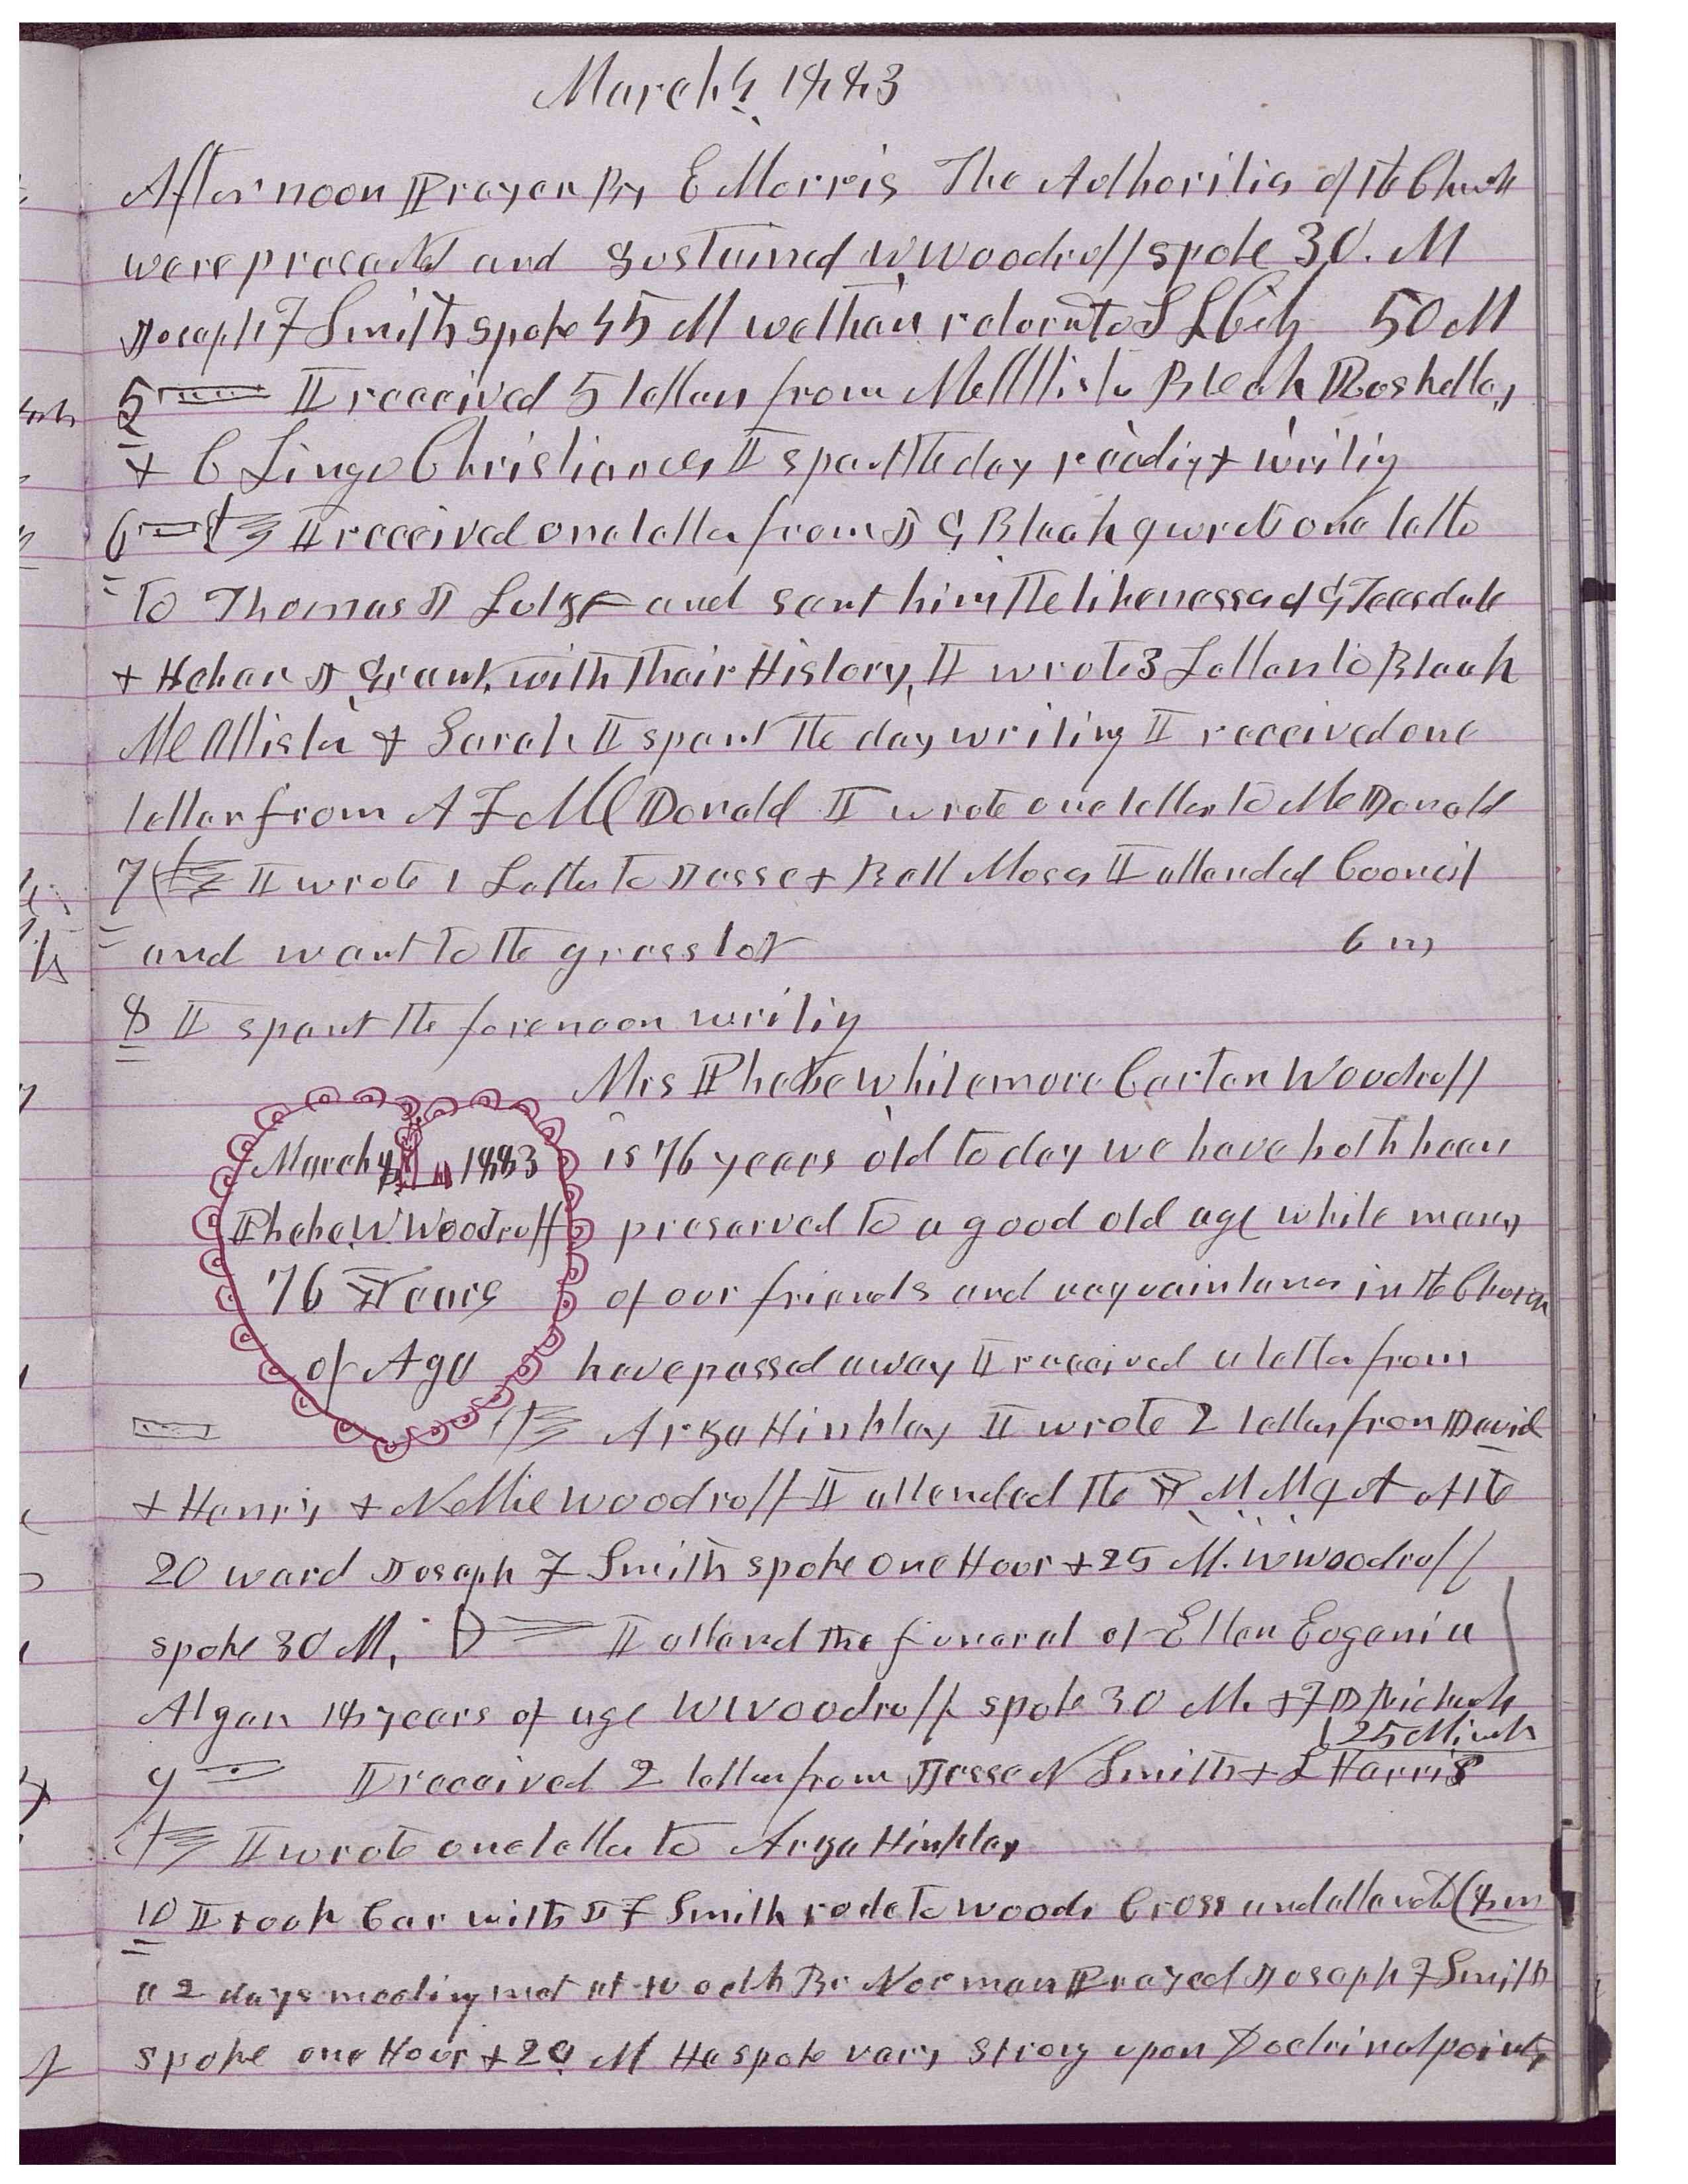 March 4, 1883
Afternoon Prayer By E Morris The Authorities of the Church
were presented and Sustained W Woodruff spoke 30. M
Joseph F Smith spoke 45 M we then returnto S L City 50 M
5 I received 5 letters from McAllister Bleak Roskelley
+ C Lingo Christianson I spent the day reading + writing
6 I received one letter from J G Bleak & wrote one lette
to Thomas J Lutze and sent him the likenesses of G Teasdale
+ Heber J Grant, with their History, I wrote 3 Letters to Bleak
McAllister + Sarah I spent the day writing I received one
letter from A F McDonald I wrote one letter to McDonald
7 I wrote 1 Letter to Jesse + Bell Moses I attended Council
and went to the grass lot 6 m
8 I spent the forenoon writing
Mrs Phebe Whitemore Carter Woodruff
March 8 1883 is 76 years old to day we have both been
Phebe. W. Woodruff preserved to a good old age while many
76 Years of our friends and acquaintances in the Church
of Age have passed away I received a letter from
Arza Hinkley I wrote 2 letters from David
+ Henry + Nellie Woodruff I attended the Y M M & A of the
20 ward Joseph F Smith spoke one Hour + 25 M. W Woodruff
spoke 30 M, I attend the funeral of Ellen Eugenia
Alger 14 years of age W Woodruff spoke 30 M. + F D Richards
25 Minuts
9 I received 2 letters from Jesse N Smith + L Harris
I wrote one letter to Arza Hinkley
10 I took Car with J F Smith rode to Woods Cross and attended (8 m
a 2 days meeting met at 10 oclk Br Norman Prayed Joseph F Smith
spoke one Hour + 20 M He spoke very strong upon Doctrinal points,